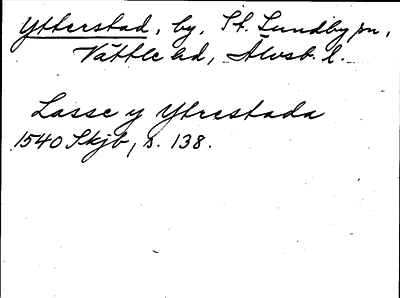 Ytterstad, by, St. Lundby sn,
Vättle hd, Älvsb. l.
Lasse y Ytrestada
1540 Skjb, s. 138.